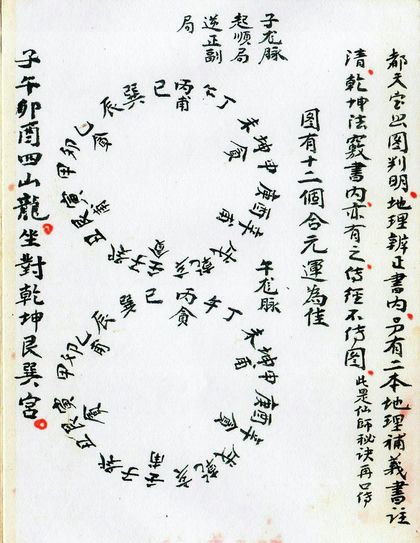 都天宝照图判明地理辨正書内另有二本地理補義書註
清乾坤法竅書内亦有之傳經不傳图
此是仙師秘訣再口傳
图有十二個合元運為佳
子龙脉
起順局
逆正副
局
巽巳丙午丁未坤申庚酉辛戌乾亥壬子癸丑艮寅甲卯乙辰
午龙脉
巽巳丙午丁未坤申庚酉辛戌乾亥壬子癸丑艮寅甲卯乙辰
子午卯酉四山龍坐對乾坤艮巽宮